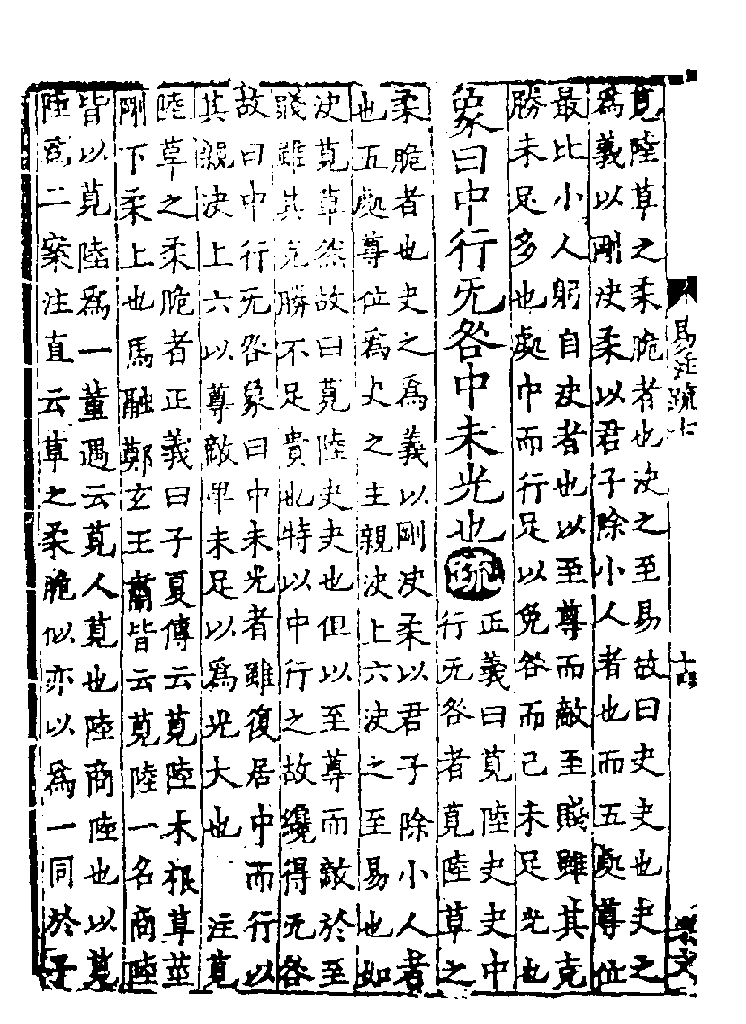 易注疏七
莧陸草之柔脆者也决之至易故曰夬夬也夬之
為義以剛决柔以君子除小人者也而五處尊位
最比小人躬自决者也以至尊而敵至賤雖其克
勝未足多也處中而行足以免咎而已未足光也
象曰中行无咎中未光也疏正義曰莧陸夬夬中
行无咎者莧陸草之
柔脆者也夬之為義以剛决柔以君子除小人者
也五處尊位為夬之主親决上六决之至易也如
决莧草然故曰莧陸夬夬也但以至尊而敵於至
賤雖其克勝不足貴也特以中行之故纔得无咎
故曰中行无咎象曰中未光者雖復居中而行以
其親决上六以尊敵卑未足以為光大也 注莧
陸草之柔脆者正義曰子夏傳云莧陸木根草莖
剛下柔上也馬融鄭玄王肅皆云莧陸一名商陸
皆以莧陸為一董遇云莧人莧也陸商陸也以莧
陸為二案注直云草之柔脆似亦以為一同於子